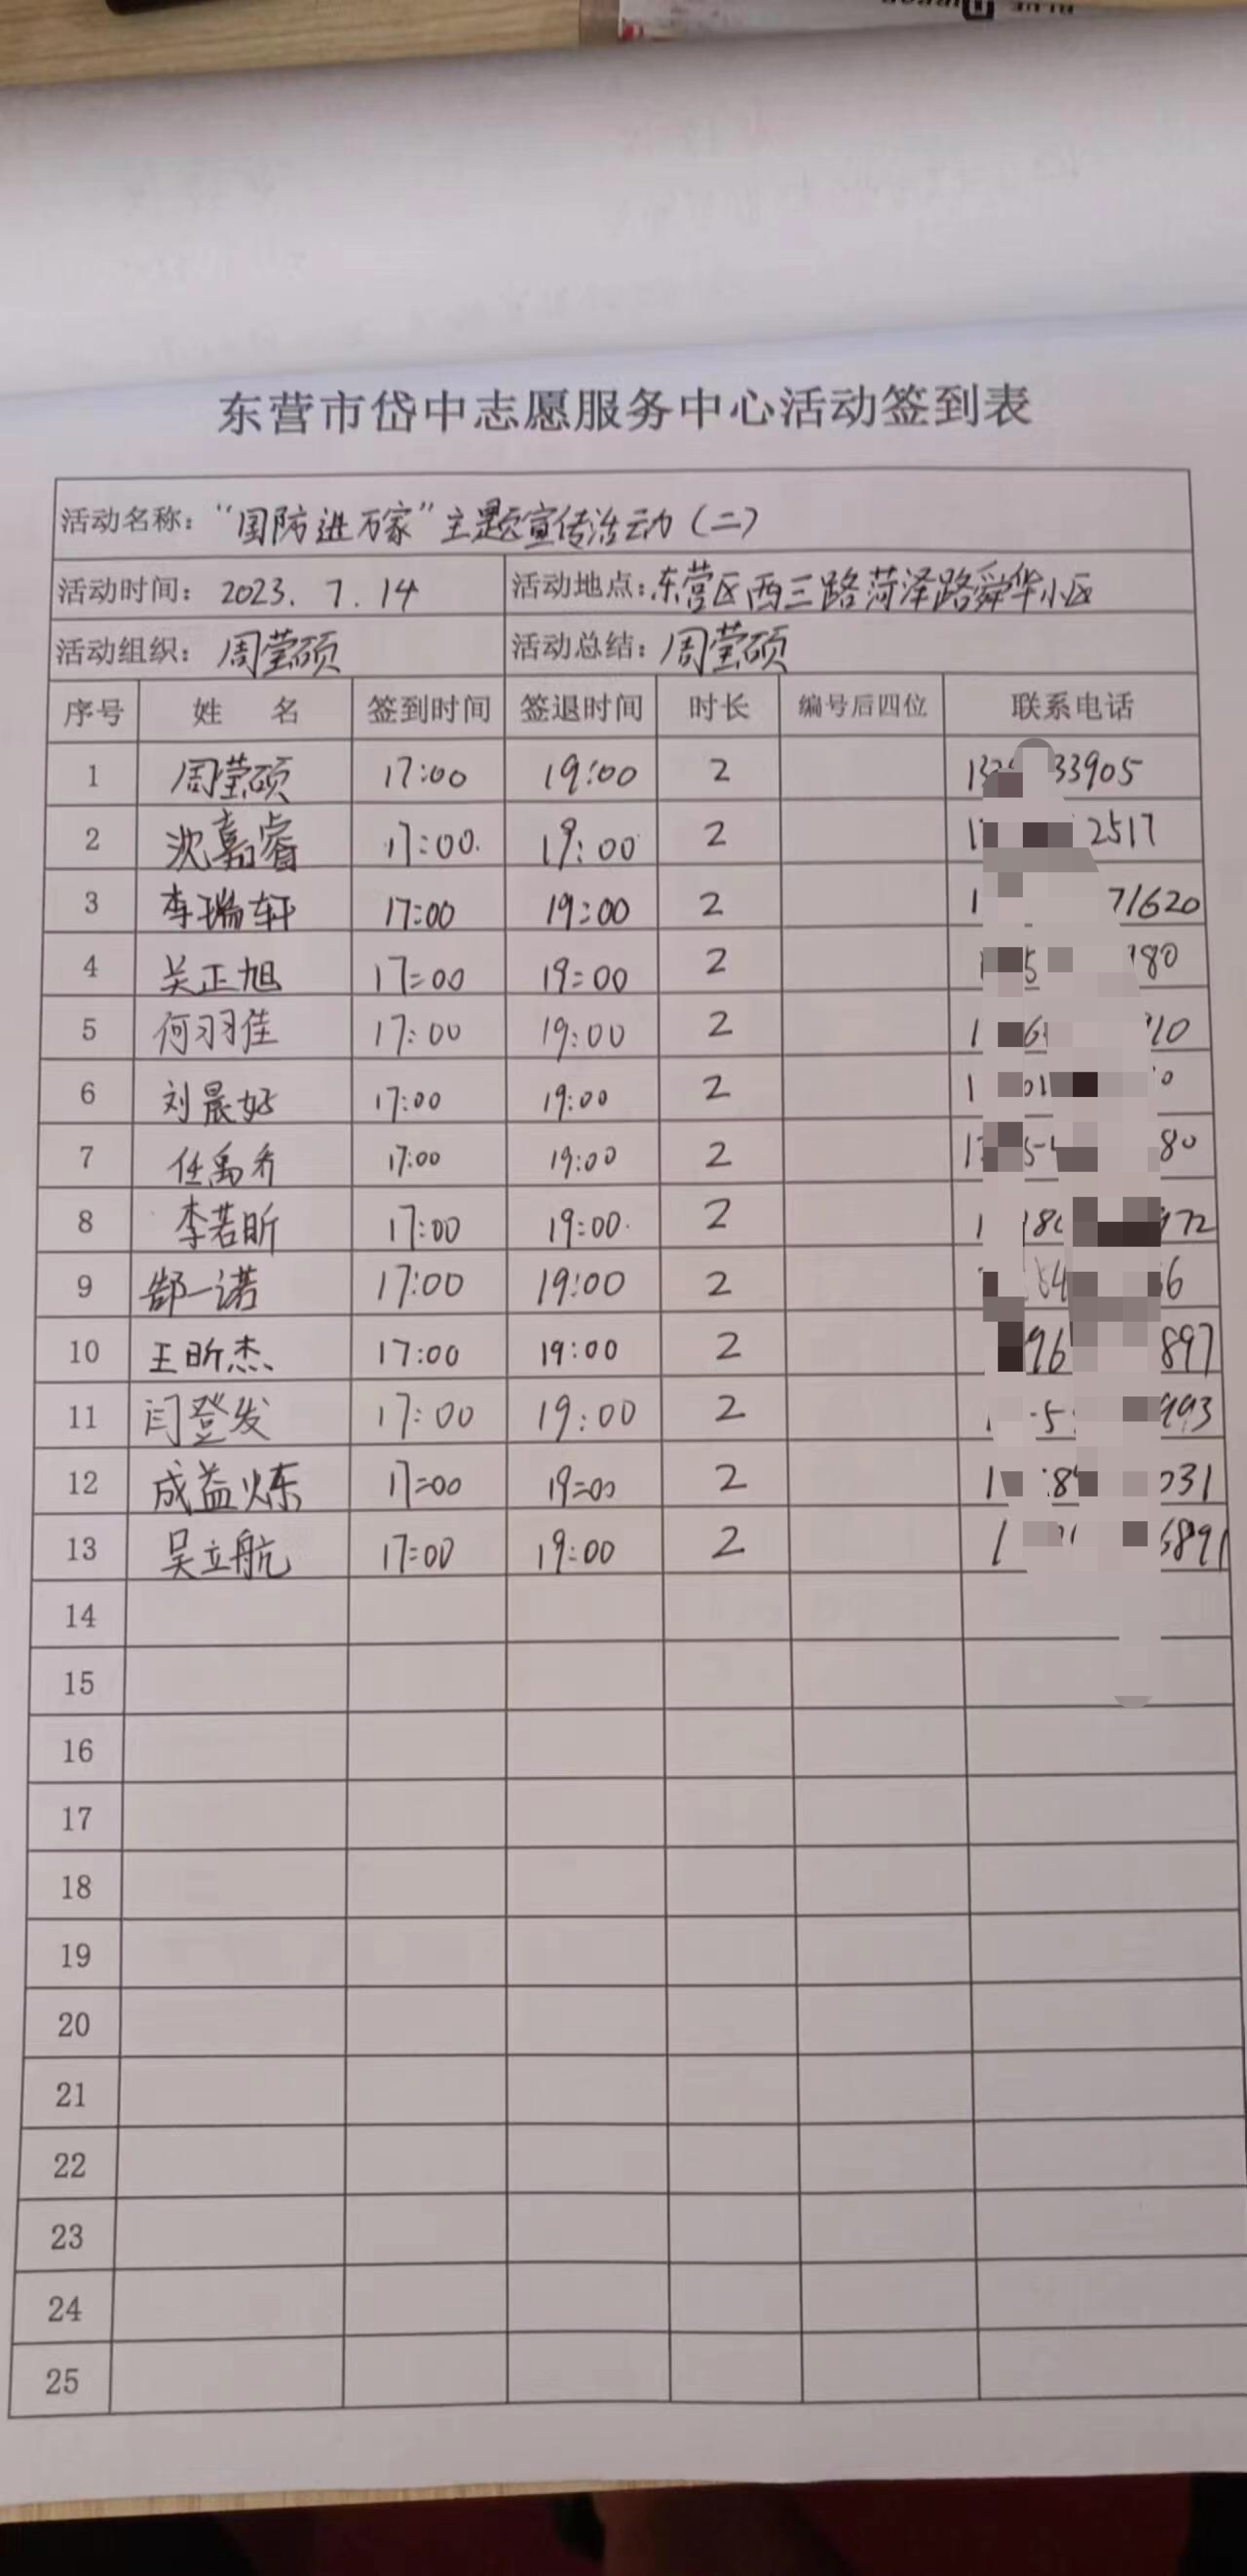 东营市岱中志愿服务中心活动签到表
活动名称：“国防进万家”主题宣传活动（二）
活动时间：2023.7.14 活动地点：东营区西三路菏泽路舜华小区
活动组织：周莹硕 活动总结：周莹硕
序号 姓 名 签到时间 签退时间 时长 编号后四位 联系电话
1 周莹硕 17:00 19:00 2 33905
2 沈嘉睿 17:00 19:00 2 2517
3 李瑞轩 17:00 19:00 2 71620
4 吴正旭 17:00 19:00 2 180
5 何羽佳 17:00 19:00 2 10
6 刘晨好 17:00 19:00 2
7 任禹希 17:00 19:00 2 80
8 李若昕 17:00 19:00 2 972
9 郜一诺 17:00 19:00 2 6
10 王昕杰 17:00 19:00 2 897
11 闫登发 17:00 19:00 2 993
12 成益炼 17:00 19:00 2 031
13 吴立航 17:00 19:00 2 6891
14
15
16
17
18
19
20
21
22
23
24
25